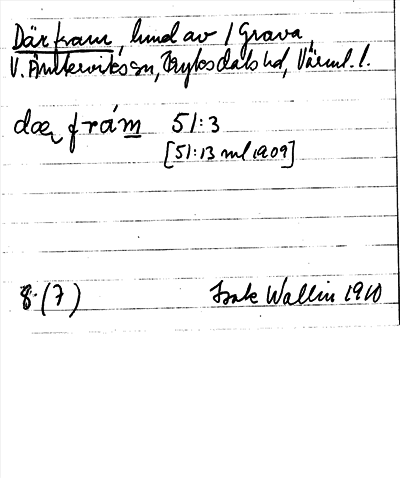 Där fram, lund av / Grava,
V. Ämterviks sn, Fryksdals hd, Värml. l.
dæ frám 51:3
[51:13 ml 1909]
8. (7) Isak Wallin 1910